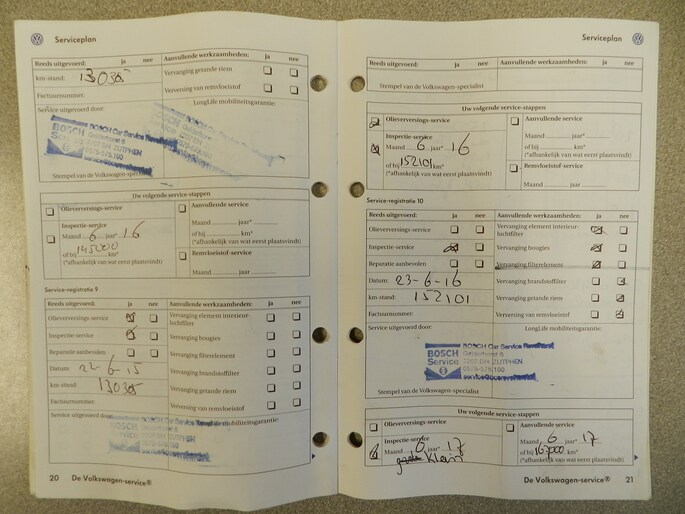 Serviceplan
Reeds uitgevoerd: ja nee
km-stand:
Factuurnummer:
Service uitgevoerd door:
Aanvullende werkzaamheden: ja nee
Vervanging getande riem
Verversing van remvloeistof
LongLife mobiliteitsgarantie:
BOSCH BOSCH Car Service
Service
7207 BH ZUTPHEN
0575-575 100
Stempel van de Volkswagen-specialist
Uw volgende service-stappen
Olieverversings-service
Inspectie-service
Maand 6 jaar* 16
145000
(*afhankelijk van wat eerst plaatsvindt)
Aanvullende service
Maand jaar*
of bij km*
(*afhankelijk van wat eerst plaatsvindt)
Remvloeistof-service
Maand jaar
Service-registratie 9
Reeds uitgevoerd: ja nee
Olieverversings-service
Inspectie-service
Reparatie aanbevolen
Datum: -6-15
km-stand:
Factuurnummer:
Service uitgevoerd door:
Aanvullende werkzaamheden: ja nee
Vervanging element interieur-
luchtfilter
Vervanging bougies
Vervanging filterelement
Vervanging brandstoffilter
Vervanging getande riem
Verversing van remvloeistof
mobiliteitsgarantie:
BOSCH BOSCH Car Service
20 De Volkswagen-service®
Serviceplan
Reeds uitgevoerd: ja nee
Aanvullende werkzaamheden: ja nee
Stempel van de Volkswagen-specialist
Uw volgende service-stappen
Olieverversings-service
Inspectie-service
Maand 6 jaar* 16
of bij 152101 km*
(*afhankelijk van wat eerst plaatsvindt)
Aanvullende service
Maand jaar*
of bij km*
(*afhankelijk van wat eerst plaatsvindt)
Remvloeistof-service
Maand jaar
Service-registratie 10
Reeds uitgevoerd: ja nee
Olieverversings-service
Inspectie-service
Reparatie aanbevolen
Datum: 23-6-16
km-stand: 152101
Factuurnummer:
Service uitgevoerd door:
Aanvullende werkzaamheden: ja nee
Vervanging element interieur-
luchtfilter
Vervanging bougies
Vervanging filterelement
Vervanging brandstoffilter
Vervanging getande riem
Verversing van remvloeistof
LongLife mobiliteitsgarantie:
BOSCH BOSCH Car Service
Service 7207 BH ZUTPHEN
0575-575 100
Stempel van de Volkswagen-specialist
Uw volgende service-stappen
Olieverversings-service
Inspectie-service
Maand 6 jaar* 17
Klein
Aanvullende service
Maand 6 jaar* 17
of bij 167000 km*
(*afhankelijk van wat eerst plaatsvindt)
De Volkswagen-service® 21